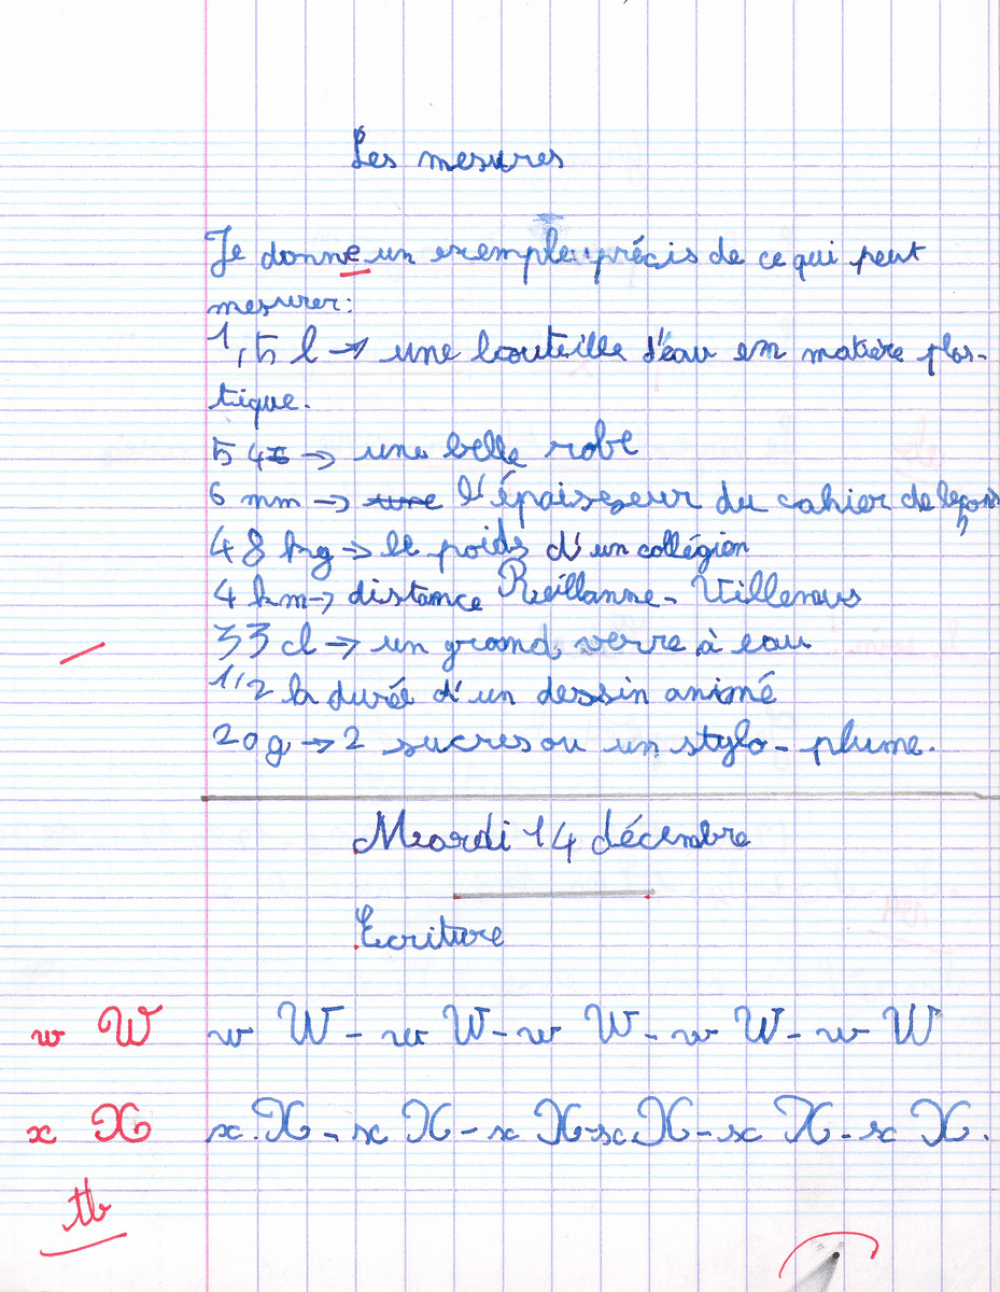 Les mesures
Je donne un exemple précis de ce qui peut
mesurer:
1,5 l → une bouteille d'eau en matière plas-
tique.
54€ → une belle robe
6 mm → une l'épaisseur du cahier de leçons
48 kg → le poids d'un collégien
4 km → distance Reillanne - Villemus
33 cl → un grand verre à eau
1/2 h durée d'un dessin animé
20g → 2 sucres ou un stylo-plume.
Mardi 14 décembre
Ecriture
w W w W - w W - w W - w W - w W
x X x X - x X - x X - x X - x X - x X.
tb